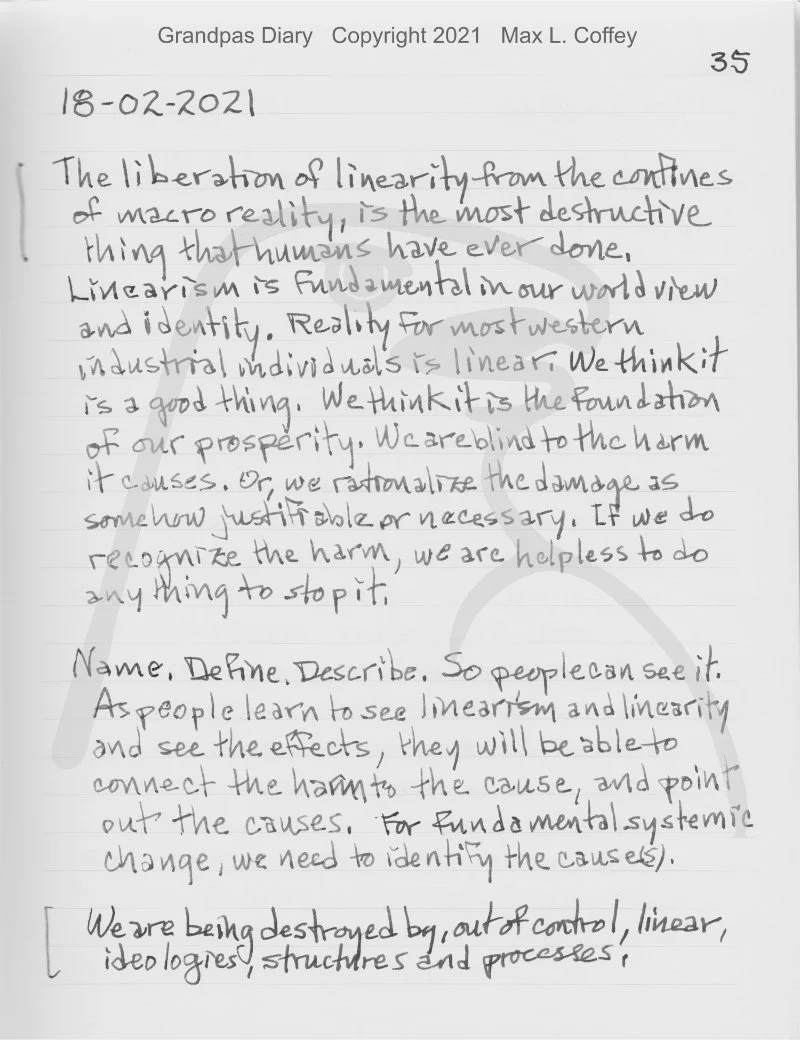 Grandpas Diary Copyright 2021 Max L. Coffey
35
18-02-2021
The liberation of linearity from the confines
of macro reality, is the most destructive
thing that humans have ever done.
Linearism is fundamental in our world view
and identity. Reality for most western
industrial individuals is linear. We think it
is a good thing. We think it is the foundation
of our prosperity. We are blind to the harm
it causes. Or, we rationalize the damage as
somehow justifiable or necessary. If we do
recognize the harm, we are helpless to do
any thing to stop it.
Name. Define. Describe. So people can see it.
As people learn to see linearism and linearity
and see the effects, they will be able to
connect the harm to the cause, and point
out the causes. For fundamental systemic
change, we need to identify the cause(s).
We are being destroyed by, out of control, linear,
ideologies, structures and processes.